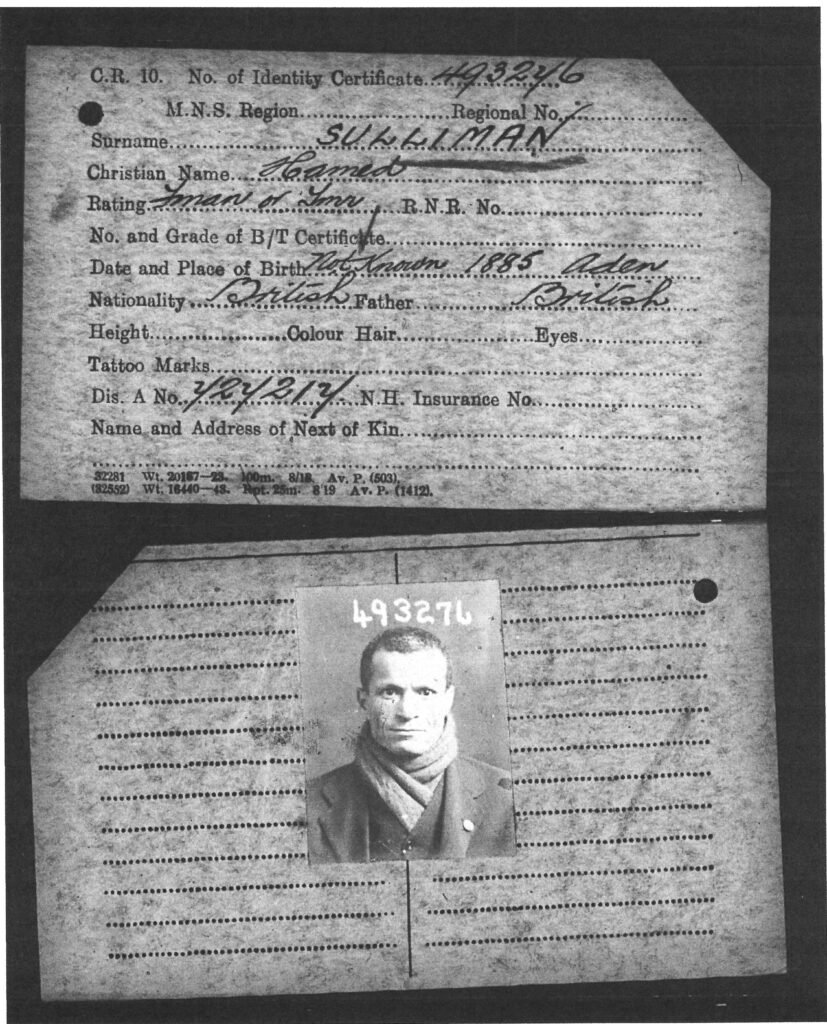 C.R. 10. No. of Identity Certificate. 493276
M.N.S. Region Regional No.
Surname SULLIMAN
Christian Name Hamed
Rating Fman or Tmr R.N.R. No.
No. and Grade of B/T Certificate
Date and Place of Birth Not Known 1885 Aden
Nationality British Father British
Height Colour Hair Eyes
Tattoo Marks
Dis. A No. 727217 N.H. Insurance No.
Name and Address of Next of Kin
32281 Wt. 20167—23. 100m. 8/18. Av. P. (503).
(32552) Wt. 16440—43. Rpt. 25m. 8 19 Av. P. (1412).
493276